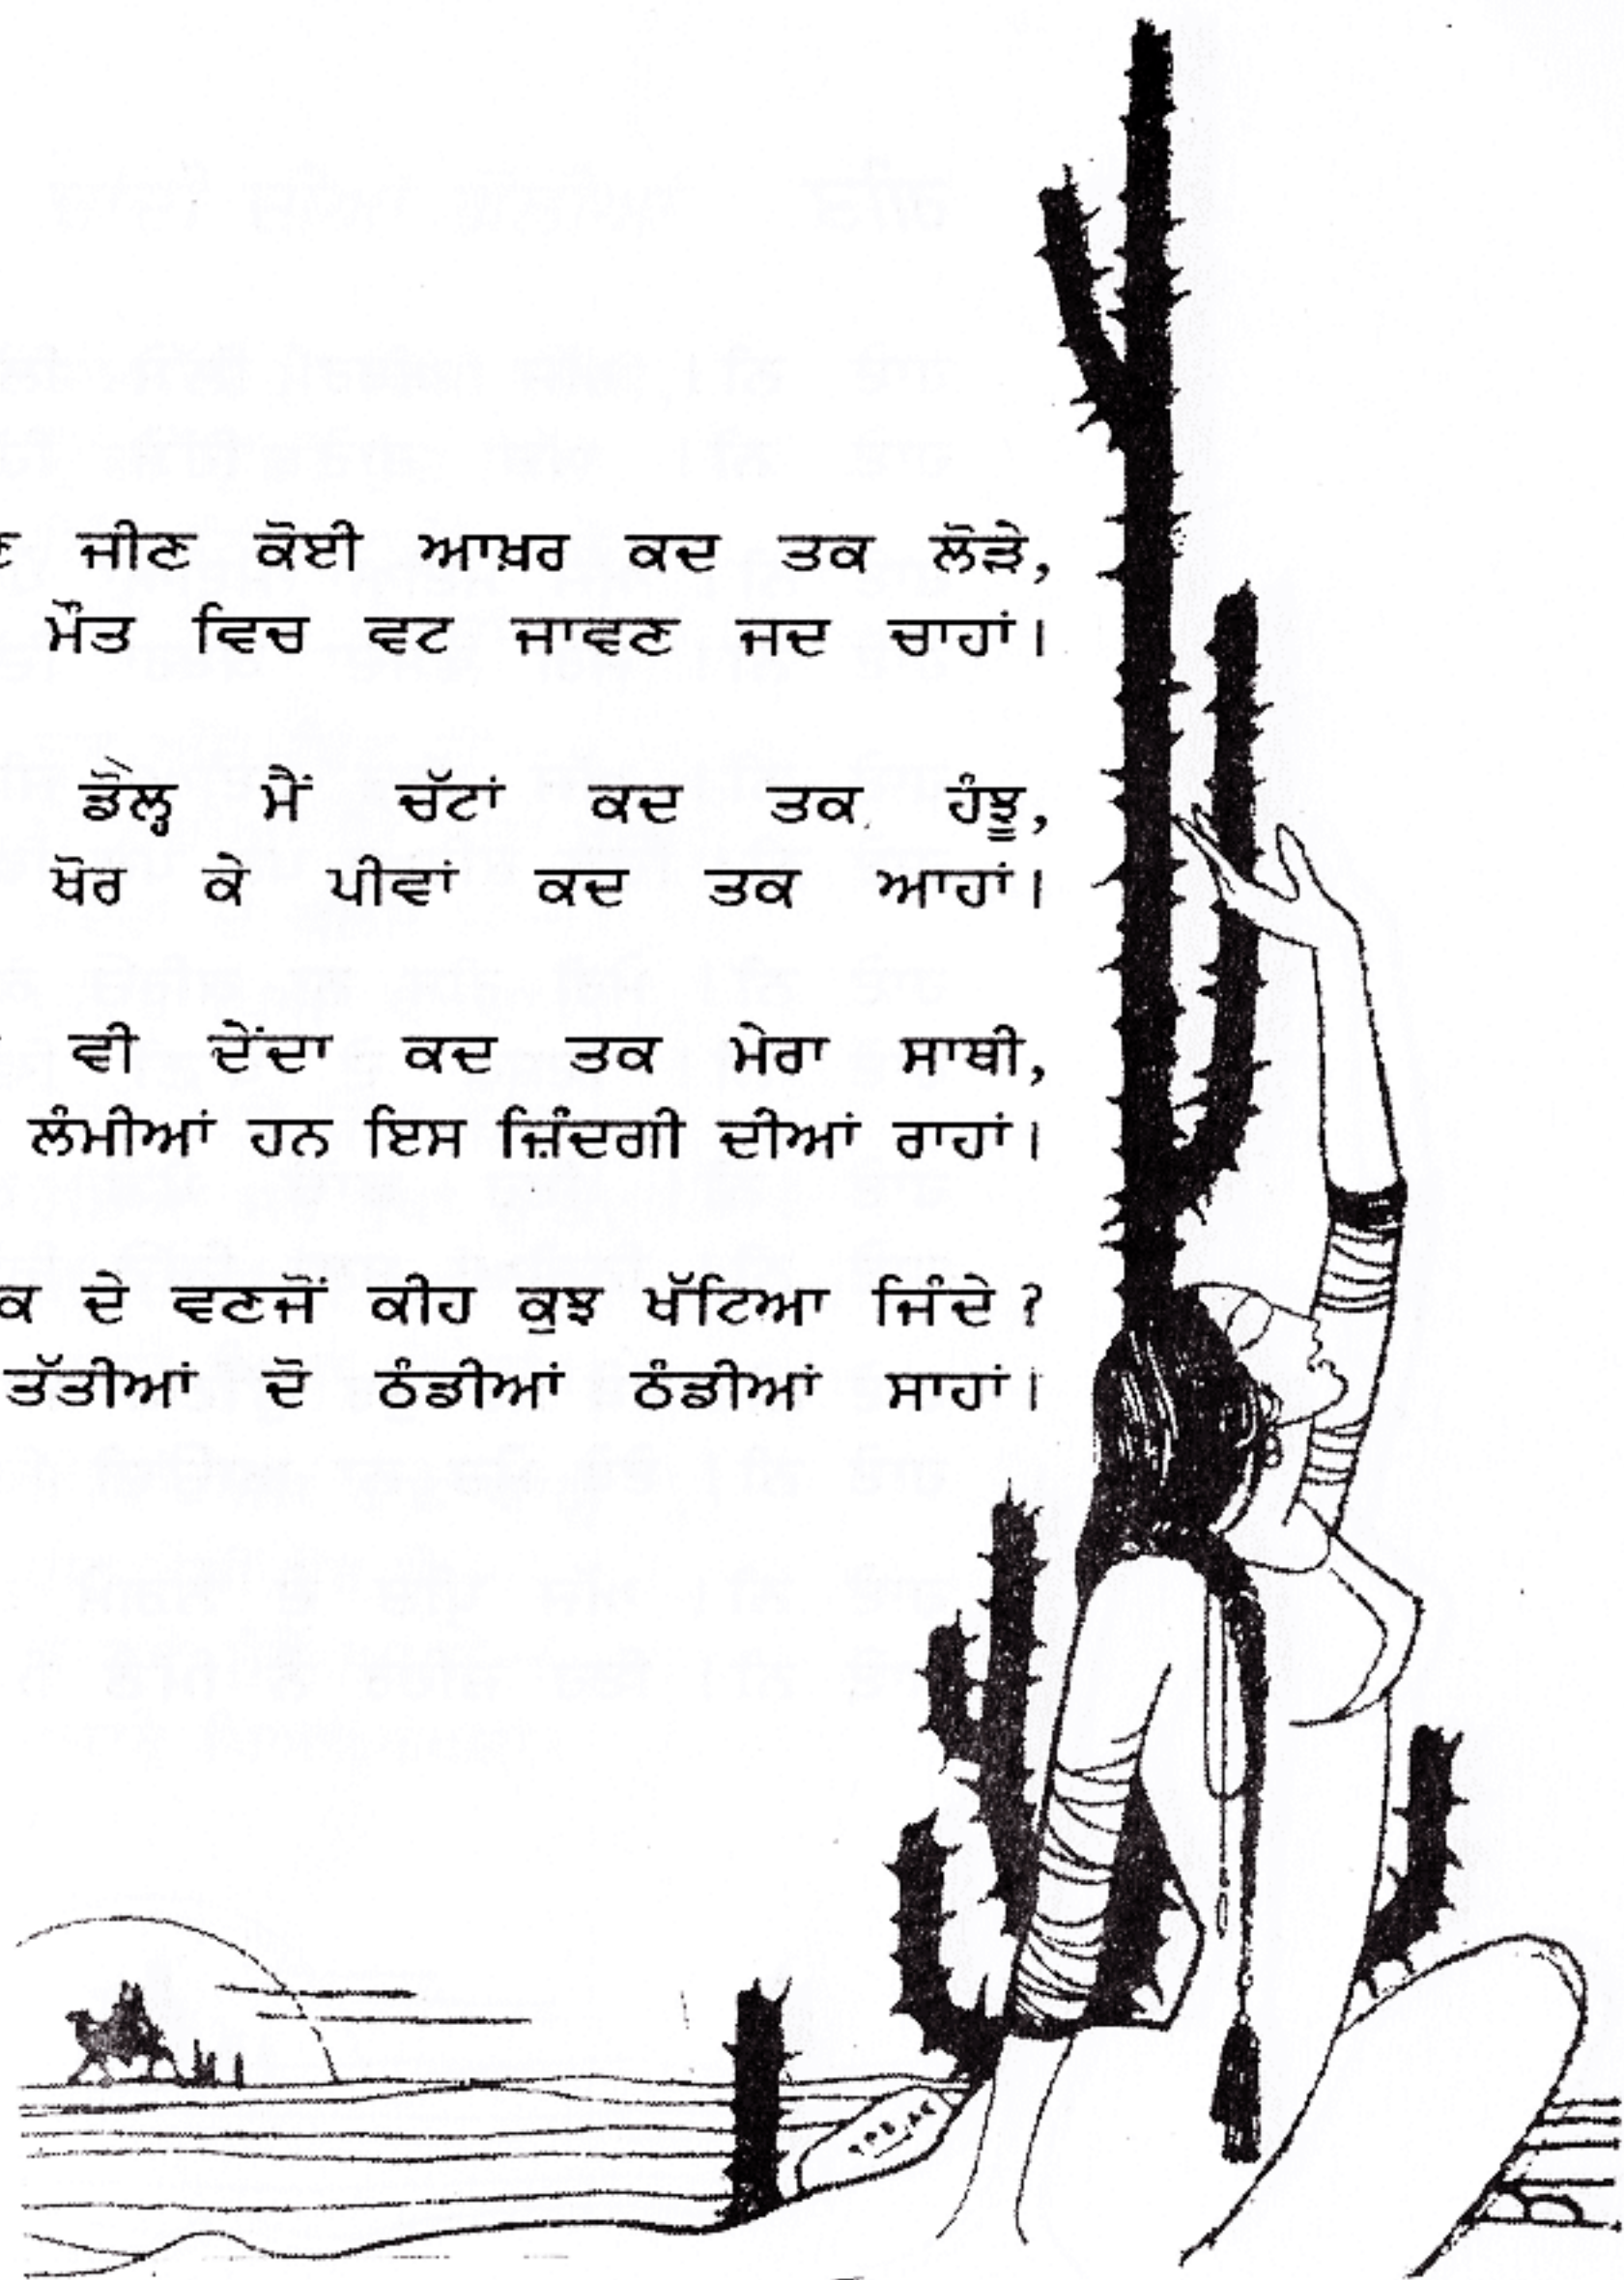 ਜੀਣ ਕੋਈ ਆਖ਼ਰ ਕਦ ਤਕ ਲੋੜੇ,
ਮੌਤ ਵਿਚ ਵਟ ਜਾਵਣ ਜਦ ਚਾਹਾਂ।
ਡੋਲ੍ਹ ਮੈਂ ਚੱਟਾਂ ਕਦ ਤਕ ਹੰਝੂ,
ਖੋਰ ਕੇ ਪੀਵਾਂ ਕਦ ਤਕ ਆਹਾਂ।
ਵੀ ਦੇਂਦਾ ਕਦ ਤਕ ਮੇਰਾ ਸਾਥੀ,
ਲੰਮੀਆਂ ਹਨ ਇਸ ਜ਼ਿੰਦਗੀ ਦੀਆਂ ਰਾਹਾਂ।
ਦੇ ਵਣਜੋਂ ਕੀਹ ਕੁਝ ਖੱਟਿਆ ਜਿੰਦੇ ?
ਤੱਤੀਆਂ ਦੋ ਠੰਡੀਆਂ ਠੰਡੀਆਂ ਸਾਹਾਂ।